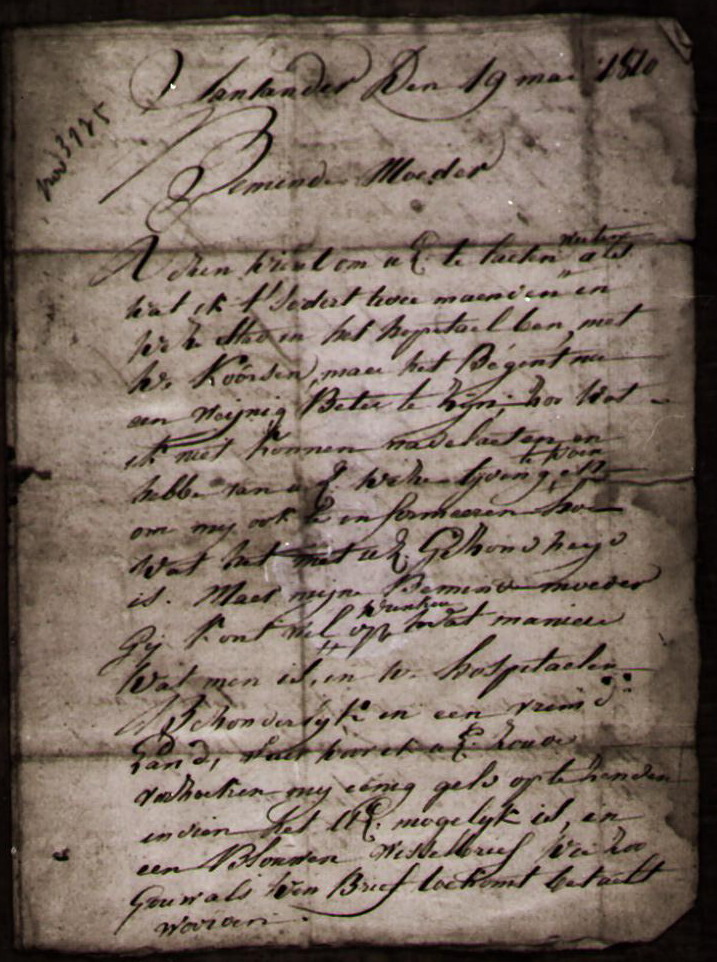 Santander Den 19 mai 1810
Beminde Moeder
dien om uE. te laeten weeten als
dat ik t'sedert twee maenden in
de stad in het hospitael ben, met
de Koorsen, maer het Begint nu
een weijnig Beter te zijn, zoo dat
ik niet konnen naerlaeten en
hebbe van uE. te doen
om mij ook te informeeren hoe
dat het met uE. Gezondheijd
is. Maer mijne Beminde moeder
Gij kont wel denken op wat maniere
dat men is, in de hospitaelen
Bezonderlijk in een vremd
Land, daer voor ik uE. zoude
versoeken mij eenig geld op te zenden
indien het UE. mogelijk is, en
een Blouwen wisselbrief die zoo
Gouw als den Brief toekomt betaelt
worden.